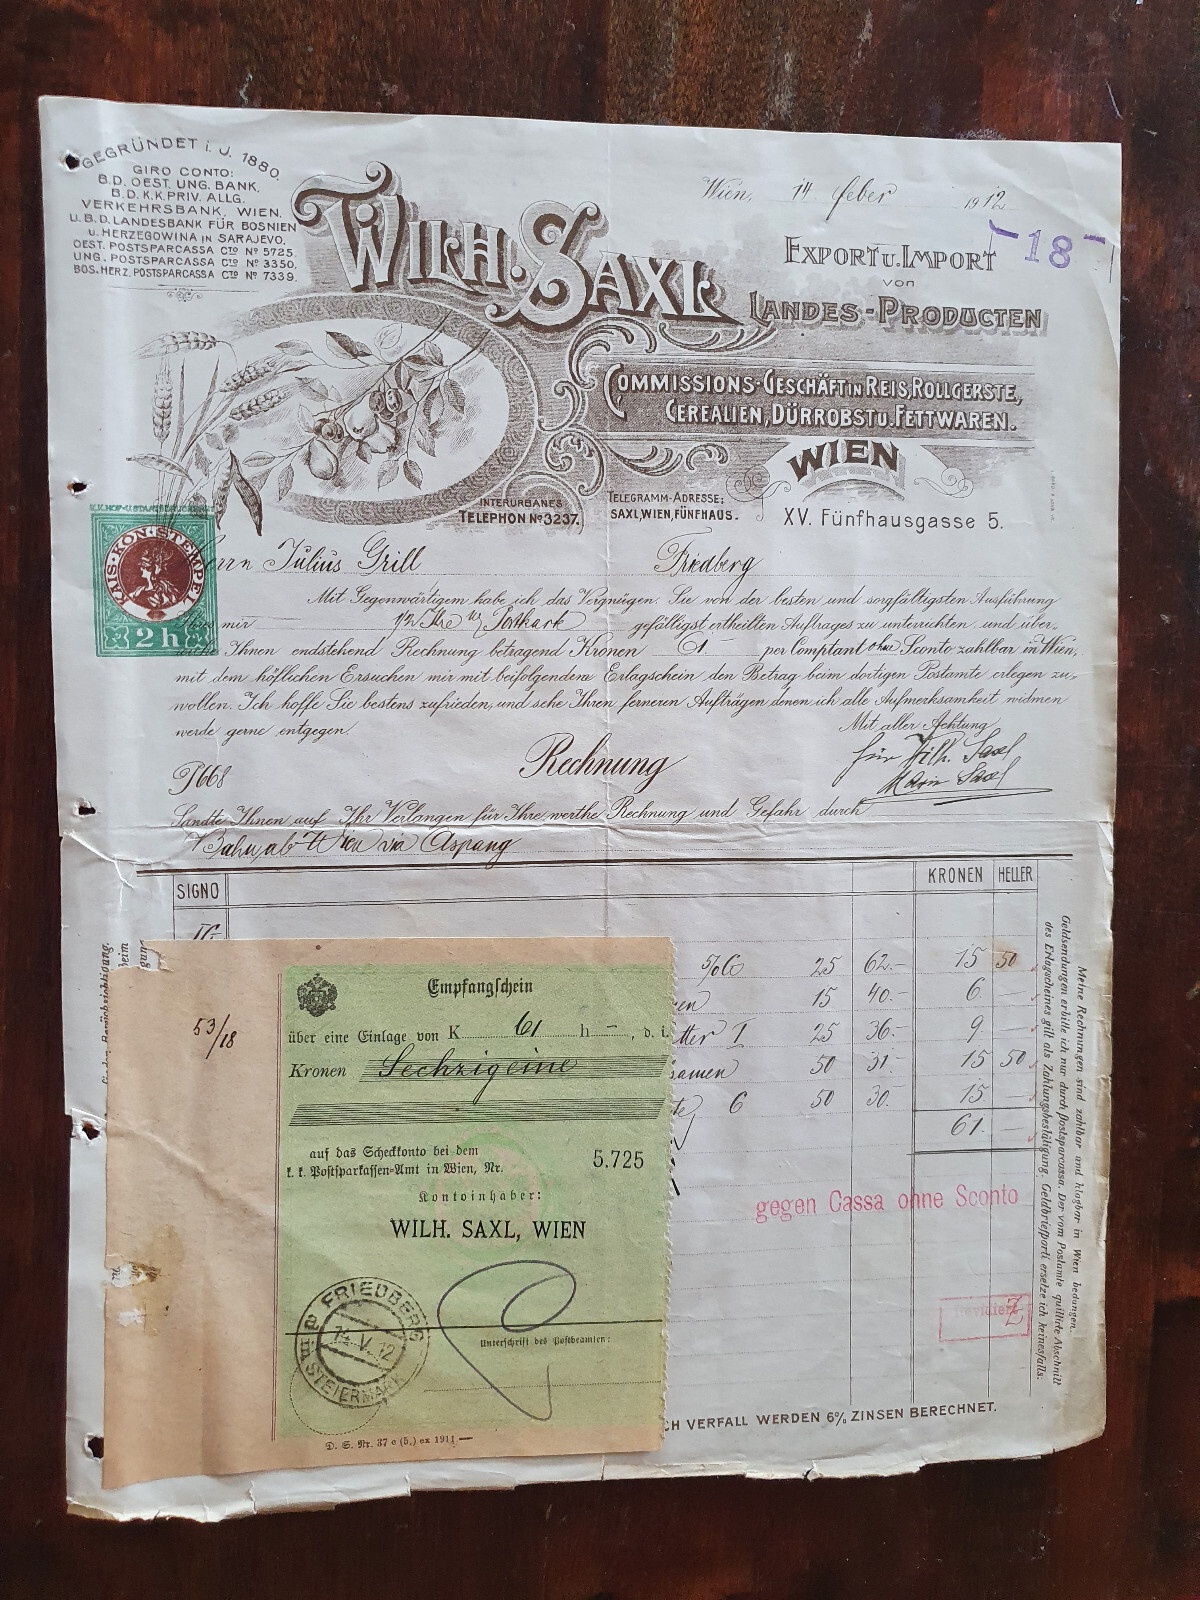 GEGRÜNDET i. J. 1880.
GIRO CONTO:
B.D. OEST. UNG. BANK.
B.D. K.K. PRIV. ALLG.
VERKEHRSBANK, WIEN.
U.B.D. LANDESBANK FÜR BOSNIEN
U. HERZEGOWINA IN SARAJEVO.
OEST. POSTSPARCASSA CTO No 5725.
UNG. POSTSPARCASSA CTO No 3350.
BOS. HERZ. POSTSPARCASSA CTO No 7339.
WILH. SAXL
Wien, 14 feber 1912
-18-
EXPORT U. IMPORT
VON
LANDES-PRODUCTEN
COMMISSIONS-GESCHÄFT IN REIS, ROLLGERSTE,
CEREALIEN, DÜRROBST U. FETTWAREN.
WIEN
INTERURBANES
TELEPHON No 3237.
TELEGRAMM-ADRESSE:
SAXL, WIEN, FÜNFHAUS.
XV. Fünfhausgasse 5.
KON. STEMPEL
2 h
Julius Grill Friedberg
Mit Gegenwärtigem habe ich das Vergnügen. Sie von der besten und sorgfältigsten Ausführung
mir Postkarte gefälligst ertheilten Auftrages zu unterrichten und über-
Ihnen endstehend Rechnung betragend Kronen 61. per Comptant ohne Sconto zahlbar in Wien,
mit dem höflichen Ersuchen mir mit beifolgendene Erlagschein den Betrag beim dortigen Postamte erlegen zu
wollen. Ich hoffe Sie bestens zufrieden, und sehe Ihren ferneren Aufträgen denen ich alle Aufmerksamkeit widmen
werde gerne entgegen.
Mit aller Achtung
für Wilh. Saxl
Marie Saxl
Rechnung
Sandte Ihnen auf Ihr Verlangen für Ihre werthe Rechnung und Gefahr durch
Bahn ab Wien via Aspang
SIGNO KRONEN HELLER
5/6 25 62.- 15 50
15 40.- 6 -
I 25 36.- 9 -
samen 50 31.- 15 50
6 50 30. 15 -
61. -
gegen Cassa ohne Sconto
Revidiert
CH VERFALL WERDEN 6% ZINSEN BERECHNET.
Meine Rechnungen sind zahlbar und klagbar in Wien bedungen.
Geldsendungen erbitte ich nur durch Postsparcassa. Der vom Postamte quittirte Abschnitt
des Erlagscheines gilt als Zahlungsbestätigung. Geldbriefporti ersetze ich keinesfalls.
53/18
Empfangschein
über eine Einlage von K 61 h - , d. i.
Kronen Sechzigeins
auf das Scheckkonto bei dem
k. k. Postsparkassen-Amt in Wien, Nr. 5.725
Kontoinhaber:
WILH. SAXL, WIEN
FRIEDBERG
V. 12
STEIERMARK
Unterschrift des Postbeamten:
D. S. Nr. 37 e (5.) ex 1911